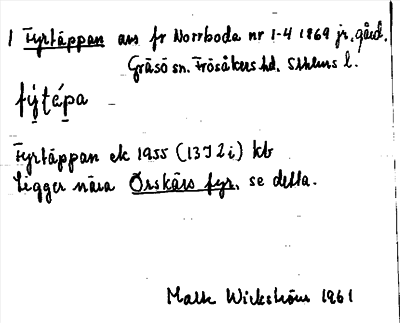 1 Fyrtäppan avs fr Norrboda nr 1-4 1869 jr, gård.
Gräsö sn. Frösåkers hd. Sthlms l.
fý̜té̜pa
Fyrtäppan ek 1955 (13J 2i) kb
Ligger nära Örskärs fyr, se detta.
Math Wickström 1961